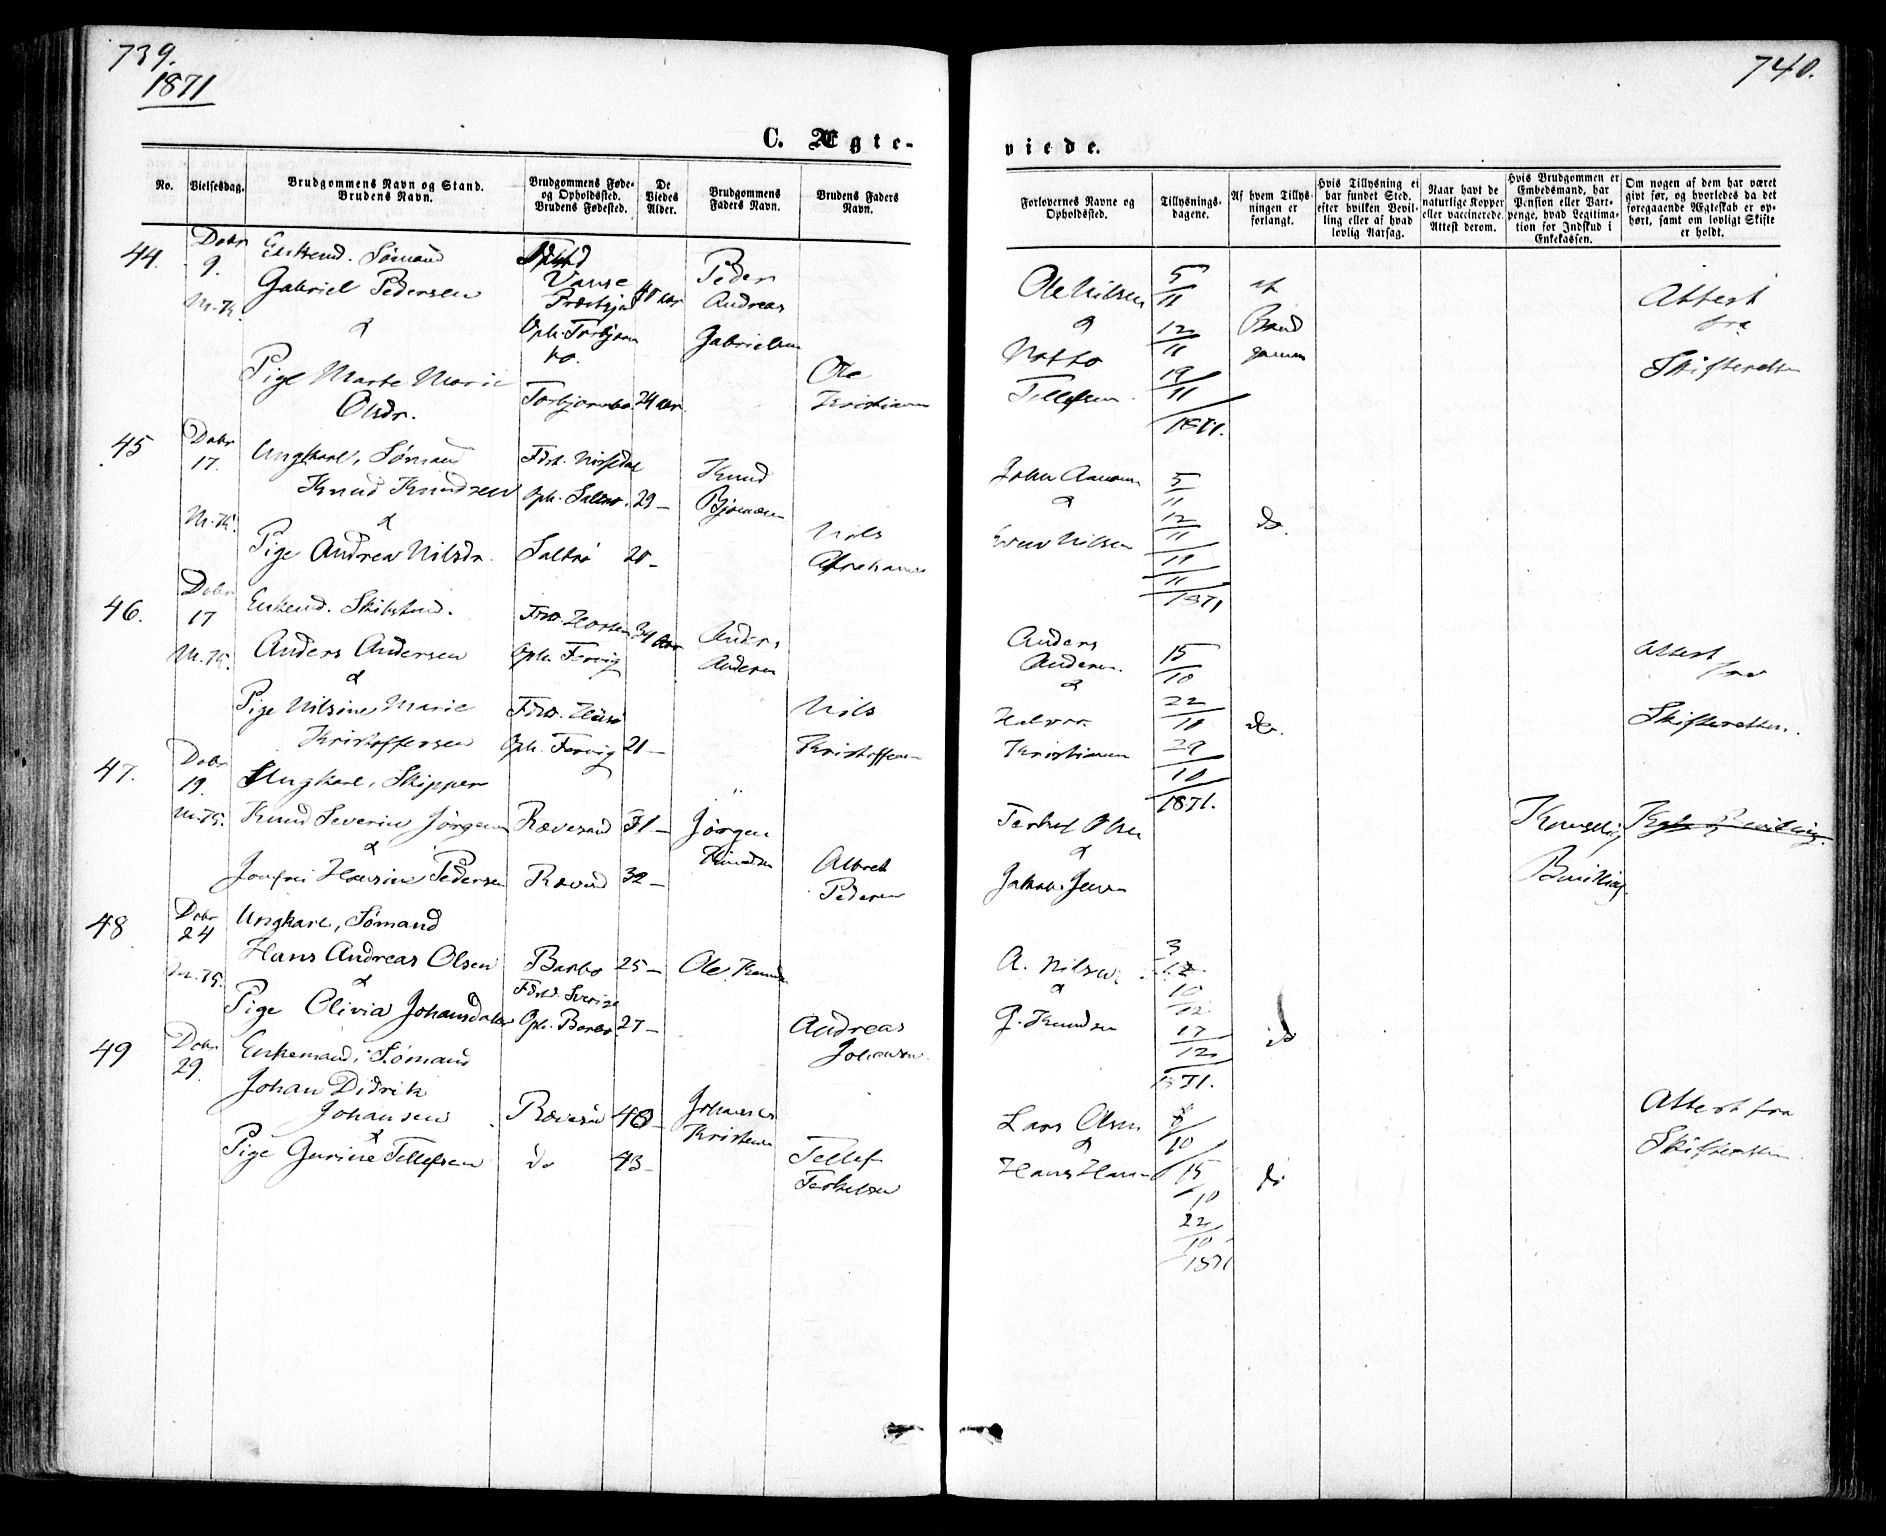 739.
1871
C. Ægte-
No.
Vielsesdag.
Brudgommens Navn og Stand.
Brudens Navn.
Brudgommens Føde-
og Opholdssted.
Brudens Fødested.
De
Viedes
Alder.
Brudgommens
Faders Navn.
Brudens Faders
Navn.
44.
Dcbr
9.
M.K.
Enkemd. Sømand
Gabriel Pedersen
&
Pige Marte Marie
Olsdr.
Vanse
Oph. Torbjørns
bo.
Torbjørnsbo
24 aar
Peder
Andreas
Gabrielsen
Ole
Kristiansen
45
Dcbr
17.
M.K.
Ungkarl, Sømand
Knud Knudsen
&
Pige Andrea Nilsdr.
Oph. Saltrø.
Saltrø
29 –
20 –
Knud
Bjørnsen
Nils
46.
Dcbr
17
M.K.
Enkemd.
Anders Andersen
&
Pige Nilsine Marie
Kristoffersen
Oph. Fervig
Oph. Fervig
34 aar
21 –
Anders
Andersen
Nils
Kristoffersen
47.
Dcbr
19.
M.K.
Ungkarl, Skipper
Knud Severin Jørgensen
&
Jomfru Hansine Pedersen
Rævesand
31 –
32 –
Jørgen
Knudsen
Albret
Pedersen
48
Dcbr
24
M.K.
Ungkarl, Sømand
Hans Andreas Olsen
&
Pige Olivia Johansdatter
Barbo
Født. Sverige
Oph. Barbo
25 –
27 –
Ole Knudsen
Andreas
Johansen
49
Dcbr
29.
Enkemand, Sømand
Johan Didrik
Johansen
&
Pige Gurine Tellefsen
Rævesand
do
43 –
Johannes
Kristensen
Tellef
Terkelsen
740.
viede.
Forlovernes Navne og
Opholdssted.
Tillysnings-
dagene.
Af hvem Tillys-
ningen er
forlangt.
Hvis Tillysning ei
har fundet Sted,
efter hvilken Bevil-
ling eller af hvad
lovlig Aarsag.
Naar havt de
naturlige Kopper
eller vaccinerede.
Attest derom.
Hvis Brudgommen er
Embedsmand, har
Pension eller Vart-
penge, hvad Legitima-
tion for Indskud i
Enkekassen.
Om nogen af dem har været
gift før, og hvorledes da det
foregaaende Ægteskab er op-
hørt, samt om lovligt Skifte
er holdt.
Ole Nilsen
&
Tellefsen
5/11
12/11
19/11
1871.
af
Brud
gommen
Attest
fra
Skifteretten
5/11
12/11
1871
do.
Nilsen
Anders
Andersen.
&
Halvor
Kristiansen
15/10
22/10
29/10
1871.
do.
Attest
fra
Skifteretten.
Terkel Olsen
&
Jakob Jensen
Kongelig
Bevilling
Kgl. Bevilling.
A. Nilsen
&
G. Knudsen
3/12
10/12
17/12
1871.
do
Lars Olsen
&
Hans Hansen
8/10
15/10
22/10
1871
do
Attest fra
Skifteretten.